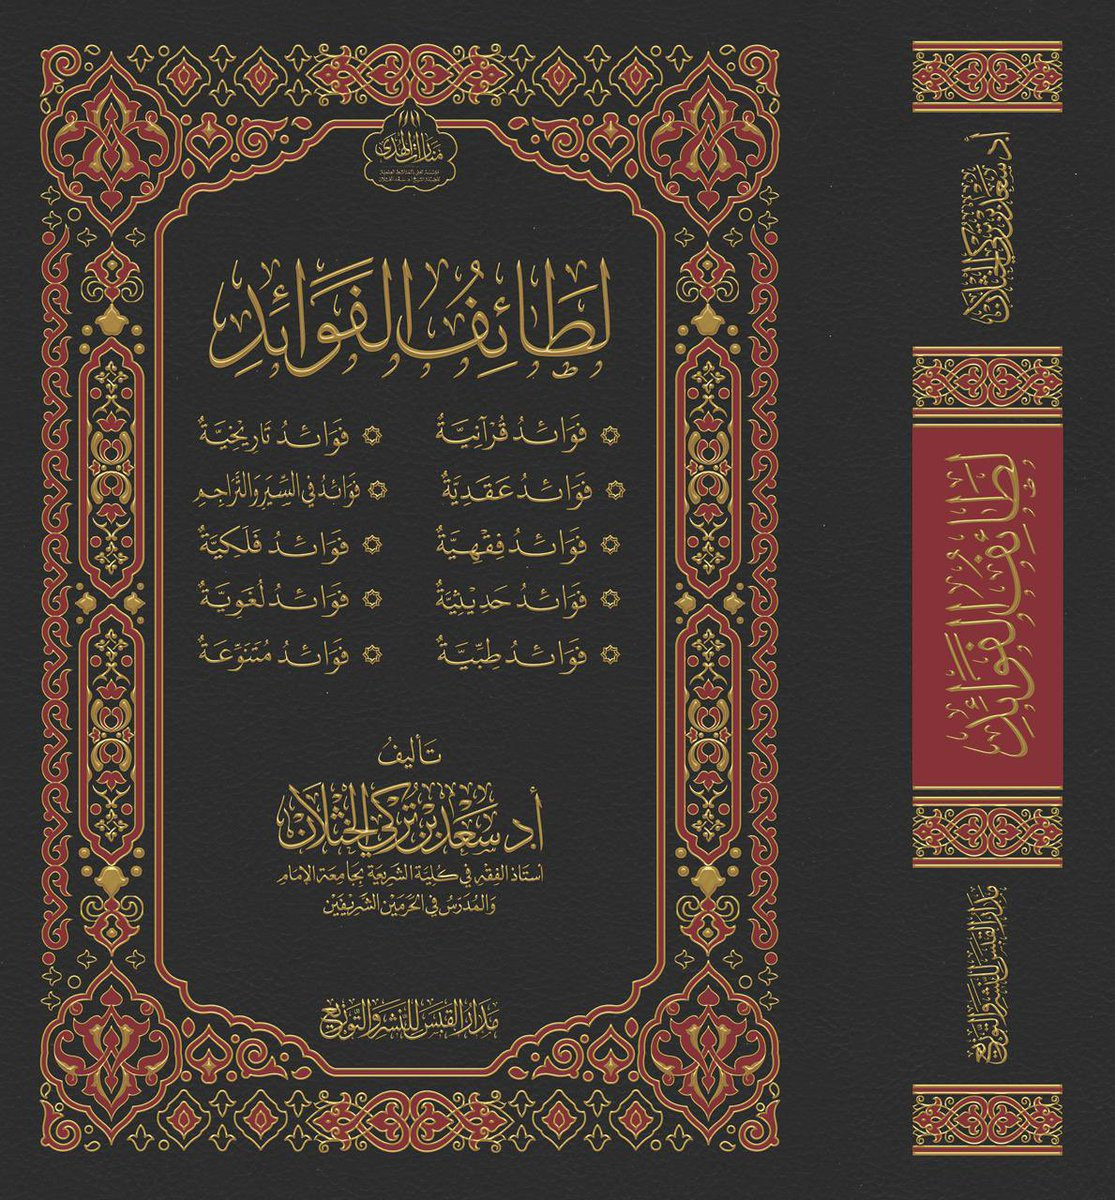 مدار الهدى
لَطَائِفُ الفَوَائِدِ
فَوَائِدُ قُرْآنِيَّةٌ
فَوَائِدُ عَقَدِيَّةٌ
فَوَائِدُ فِقْهِيَّةٌ
فَوَائِدُ حَدِيثِيَّةٌ
فَوَائِدُ طِبِّيَّةٌ
فَوَائِدُ تَارِيخِيَّةٌ
فَوَائِدُ فِي السِّيَرِ وَالتَّرَاجِمِ
فَوَائِدُ فَلَكِيَّةٌ
فَوَائِدُ لُغَوِيَّةٌ
فَوَائِدُ مُتَنَوِّعَةٌ
تَأليفُ
أ.د سَعْد بْن تُرْكِي الخَثْلَان
أستاذ الفقه في كلية الشريعة بجامعة الإمام
والمدرس في الحرمين الشريفين
مدار القبس للنشر والتوزيع
أ.د سَعْد بْن تُرْكِي الخَثْلَان
لَطَائِفُ الفَوَائِدِ
مدار القبس للنشر والتوزيع